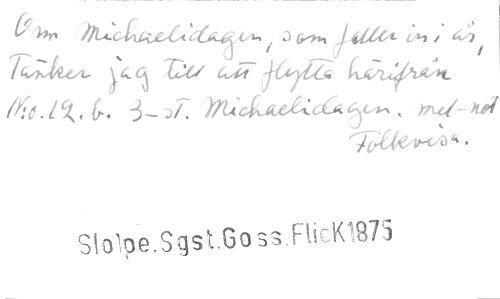 Om Michaelidagen, som faller in i år,
Tänker jag till att flytta härifrån
N:o.12.b. 3-st. Michaelidagen. mel-not
Folkvisa.
Slolpe.Sgst.Goss.FlicK1875